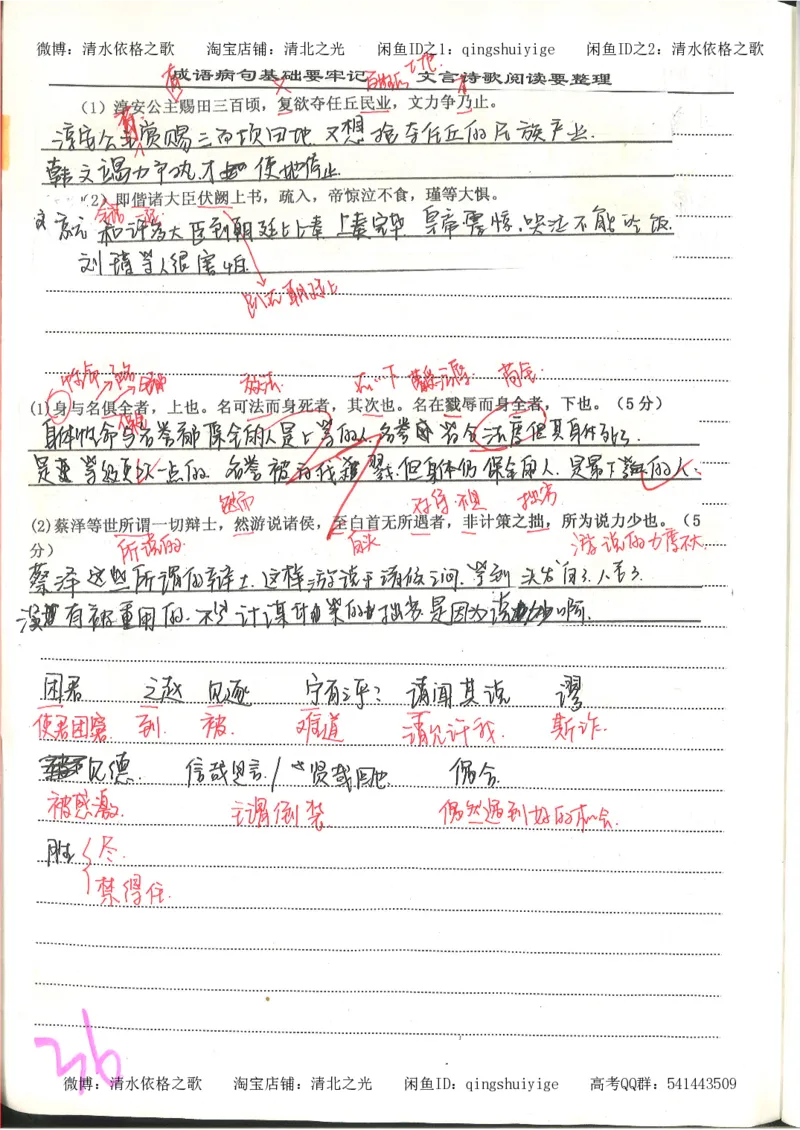 微博：清水依格之歌 淘宝店铺：清北之光 闲鱼ID之1：qingshuiyige 闲鱼ID之2：清水依格之歌
成语病句基础要牢记 文言诗歌阅读要整理
（1）淳安公主赐田三百顷，复欲夺任丘民业，文力争乃止。
淳安公主赏赐三百顷田地 又想 抢夺任丘的民族产业.
韩文竭力争执,才 使她停止
（2）即偕诸大臣伏阙上书，疏入，帝惊泣不食，瑾等大惧。
和许多大臣到朝廷上上奏 上奏完毕 皇帝震惊,哭泣不能吃饭.
刘瑾等人很害怕.
(1)身与名俱全者，上也。名可法而身死者，其次也。名在戮辱而身全者，下也。（5 分）
身体性命与名誉都保全的人是上等的人,名誉 符合法度但其身体死了
是 等级更次一点的. 名誉被 戮,但身体仍保全的人.是最下 的人.
然而
(2)蔡泽等世所谓一切辩士，然游说诸侯，至白首无所遇者，非计策之拙，所为说力少也。（5
分）
所说的 白头 游说的力度不大
蔡泽这些所谓的辩士.这样游说于诸侯之间.等到头发白了.人老了.
没 有被重用的.不 计谋 策的 拙劣.是因为 啊.
困君 之赵 见逐 宁有之乎？ 请闻其说 谬
使君困窘 到. 被. 难道 请允许我. 欺诈.
见德. 信哉是言 / 贤哉回也 偶合
被感激. 主谓倒装 偶然遇到好的机会.
胜 尽.
禁得住.
36
微博：清水依格之歌 淘宝店铺：清北之光 闲鱼ID：qingshuiyige 高考QQ群：541443509